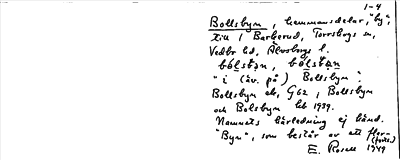 1-4
Bollsbyn, hemmansdelar, "by"
till 1 Barkerud, Torrskogs sn,
Vedbo hd, Älvsborgs l.
bólsbən, bólsbən
"i (äv. på) Bollsbyn".
Bollsbyn ek, G62, Bollsbyn
och Bolsbyn kb 1939.
Namnets härledning ej känd.
"Byn", som består av ett fler-
(forts.)
E. Rosell 1949